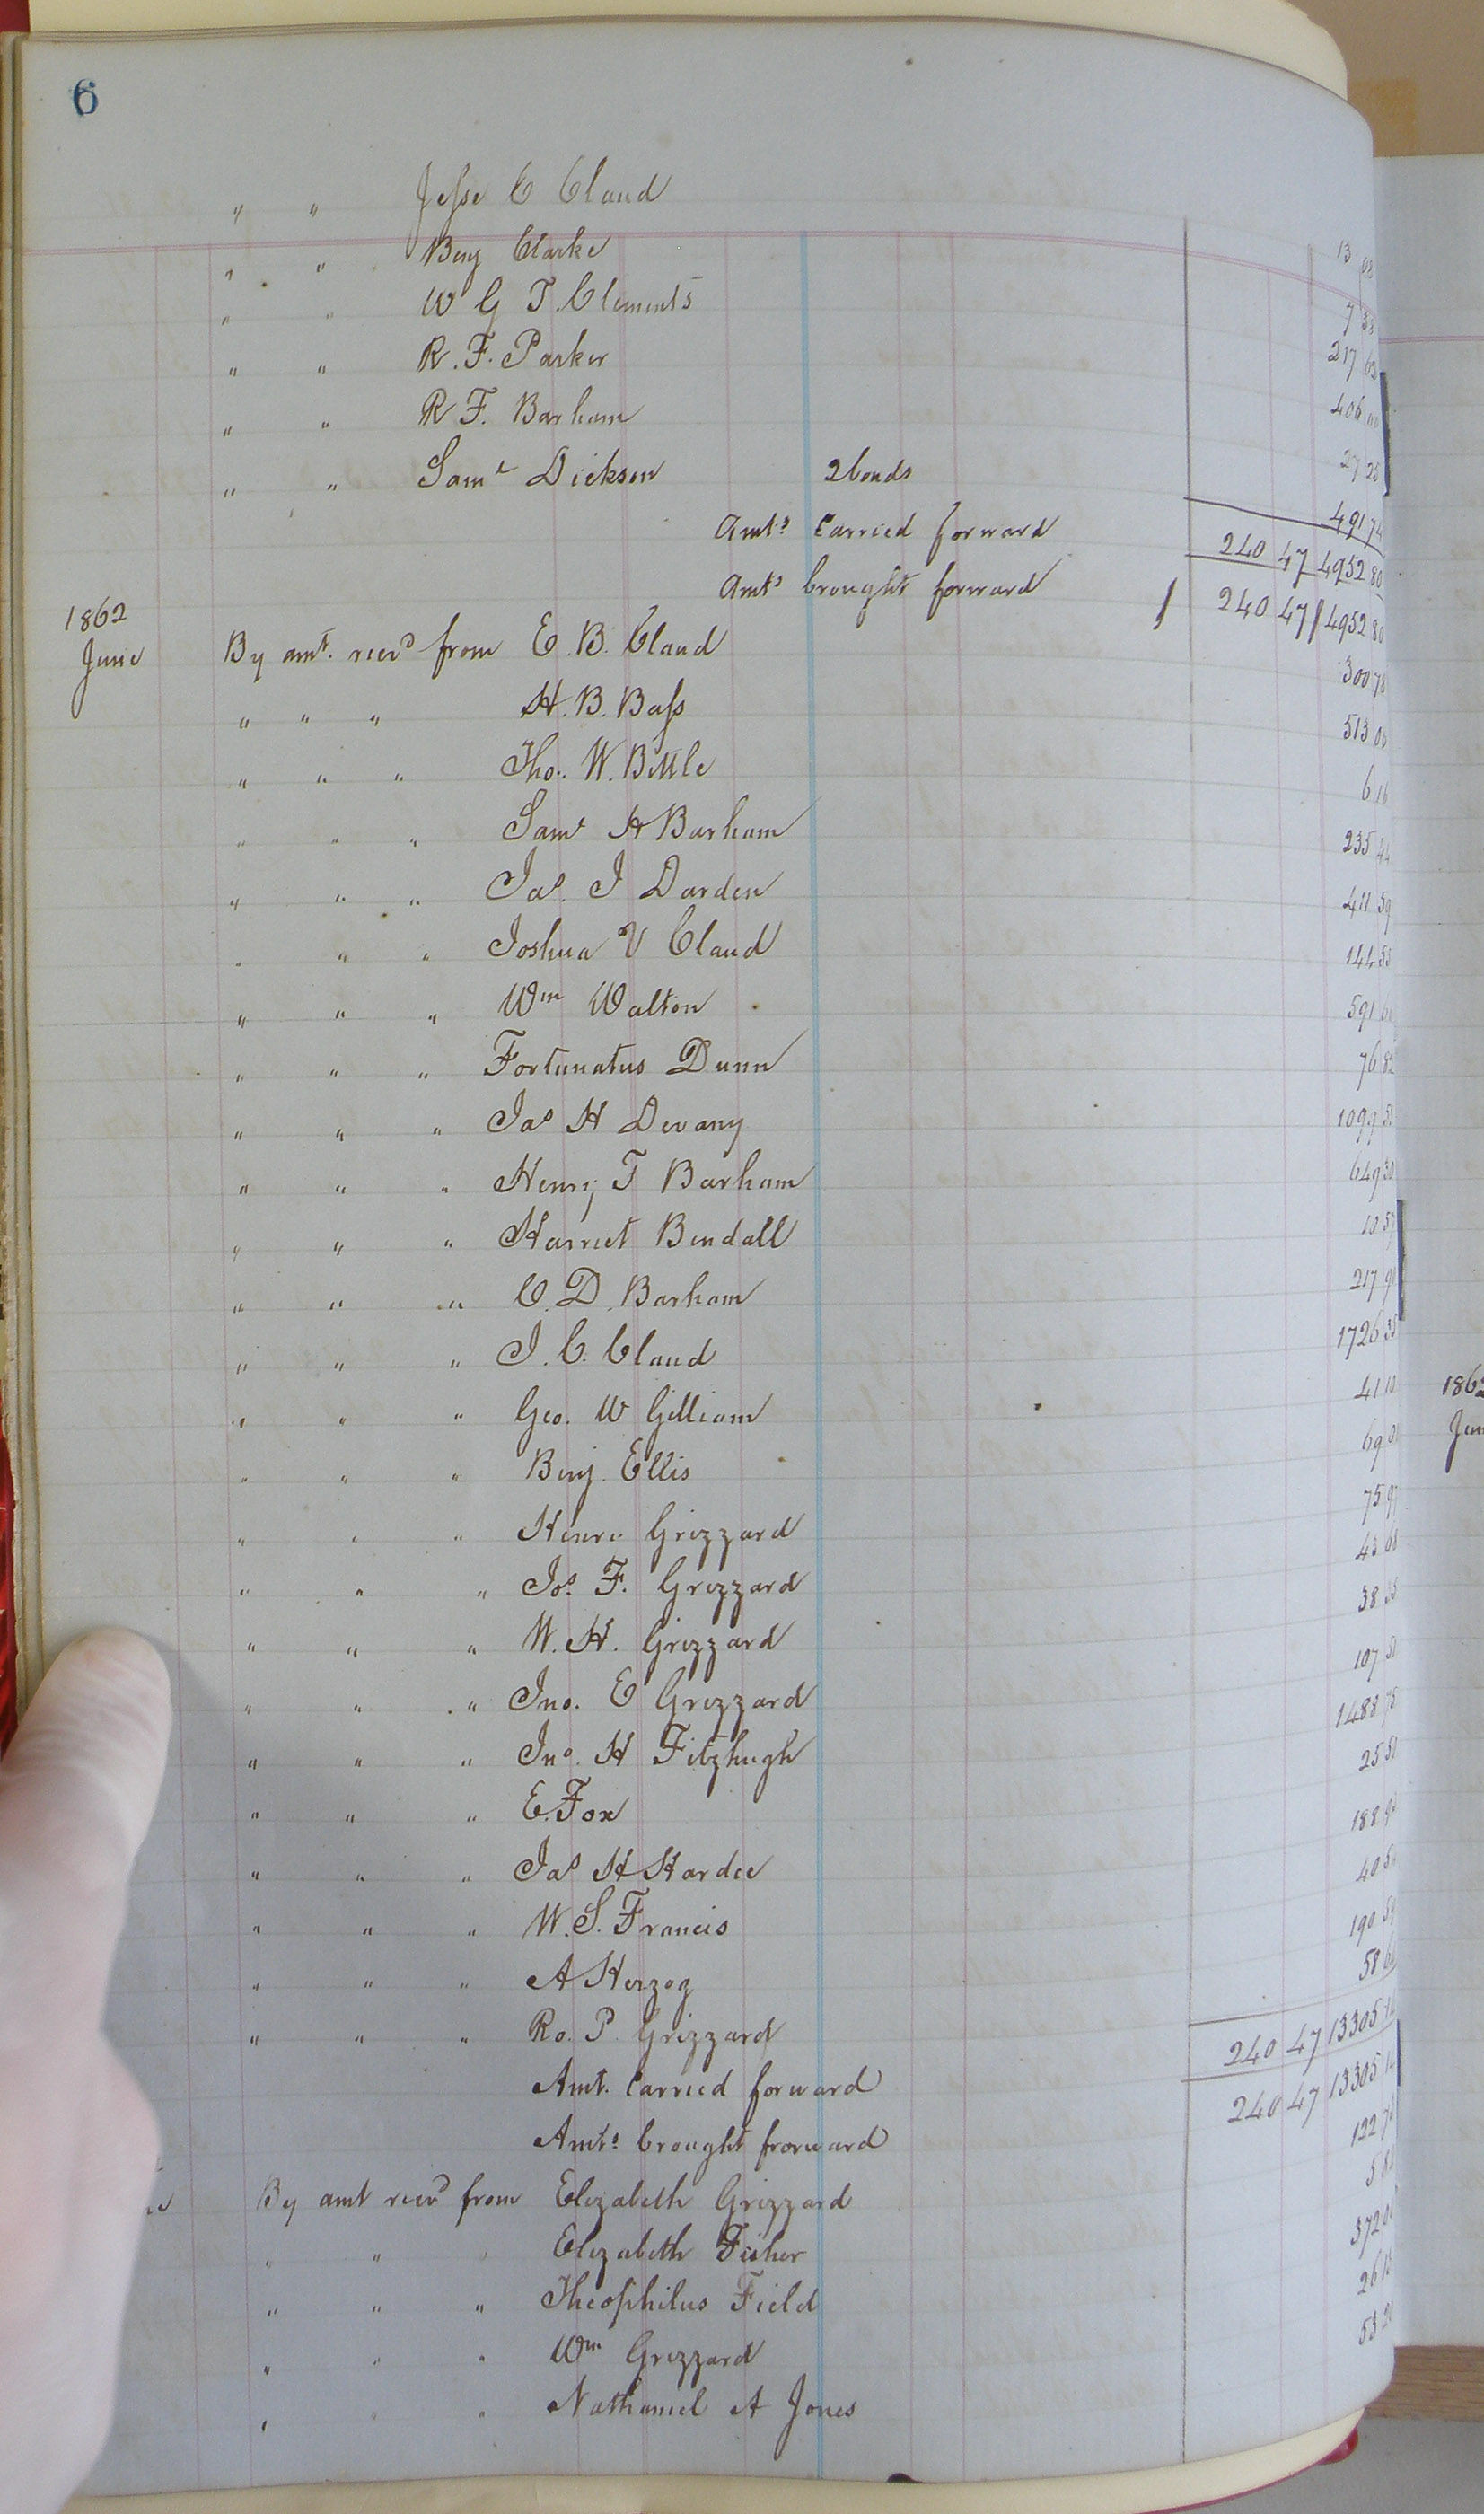 6
" " Jesse C Claud 13 08
" " Benj Clarke 7 38
" " W G T Clements 217 63
" " R. F. Parker 406 00
" " R F. Barham 27 28
" " Saml Dickson 2 bonds 491 74
Amts Carried forward 240 47 4952 80
Amts brought forward 240 47 4952 80
1862
June By amt. recvd from E. B. Claud 300 78
" " " H. B. Bass 513 06
" " " Tho. W. Bittle 6 16
" " " Saml H Barham 235 44
" " " Jas. J Darden 411 59
" " " Joshua V Claud 144 53
" " " Wm Walton 591
" " " Fortunatus Dunn 76 82
" " " Jas H Devany 1099
" " " Henry T Barham 649 30
" " " Harriet Bendall 10
" " " C. D. Barham 217
" " " J. C. Claud 1726 35
" " " Geo. W Gilliam 41 10
" " " Benj. Ellis 69
" " " Henri Grizzard 75
" " " Jos. F. Grizzard 43 08
" " " W. H. Grizzard 38
" " " Jno. E Grizzard 107
" " " Jno. H Fitzhugh 1488 75
" " " E. Fox 25 50
" " " Jas H Hardee 188
" " " W. S. Francis 40
" " " A Herzog 190
" " " Ro. P. Grizzard 58
Amt. Carried forward 240 47 13305
Amts. brought frorward 240 47 13305
By amt recvd from Elizabeth Grizzard 122
" " " Elizabeth Fisher 5
" " " Theophilus Field 372
" " " Wm Grizzard 26
" " " Nathaniel A Jones 53
1862